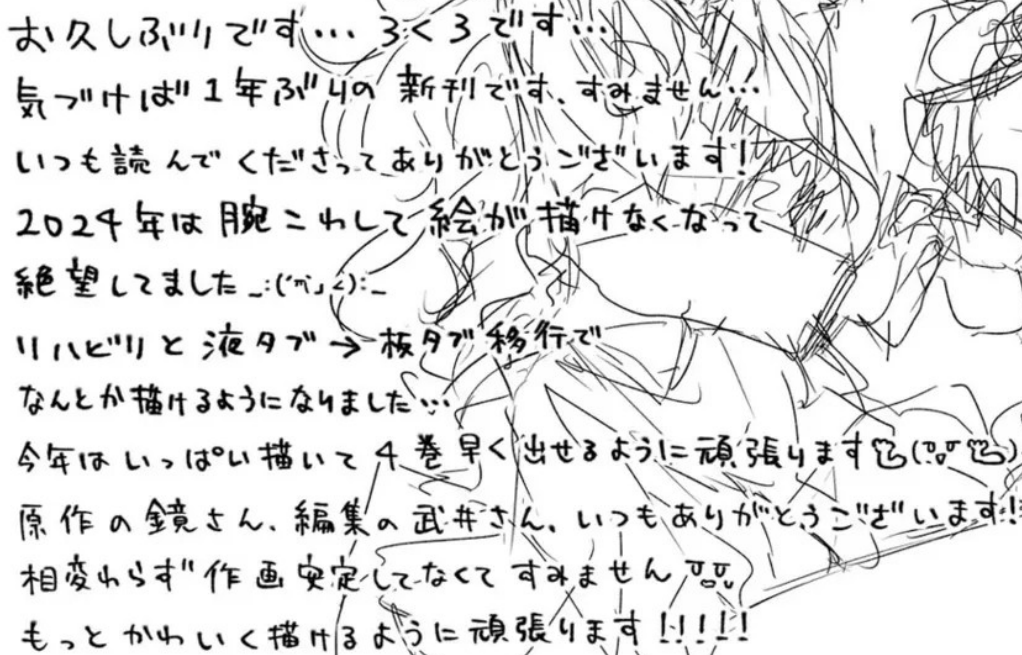 お久しぶりです…ろくろです…
気づけば1年ぶりの新刊です、すみません…
いつも読んでくださってありがとうございます!
2024年は腕こわして絵が描けなくなって
絶望してました_:(´ཀ`」∠):_
リハビリと液タブ→板タブ移行で
なんとか描けるようになりました…
今年はいっぱい描いて4巻早く出せるように頑張ります
原作の鏡さん、編集の武井さん、いつもありがとうございます!
相変わらず作画安定してなくてすみません
もっとかわいく描けるように頑張ります!!!!!